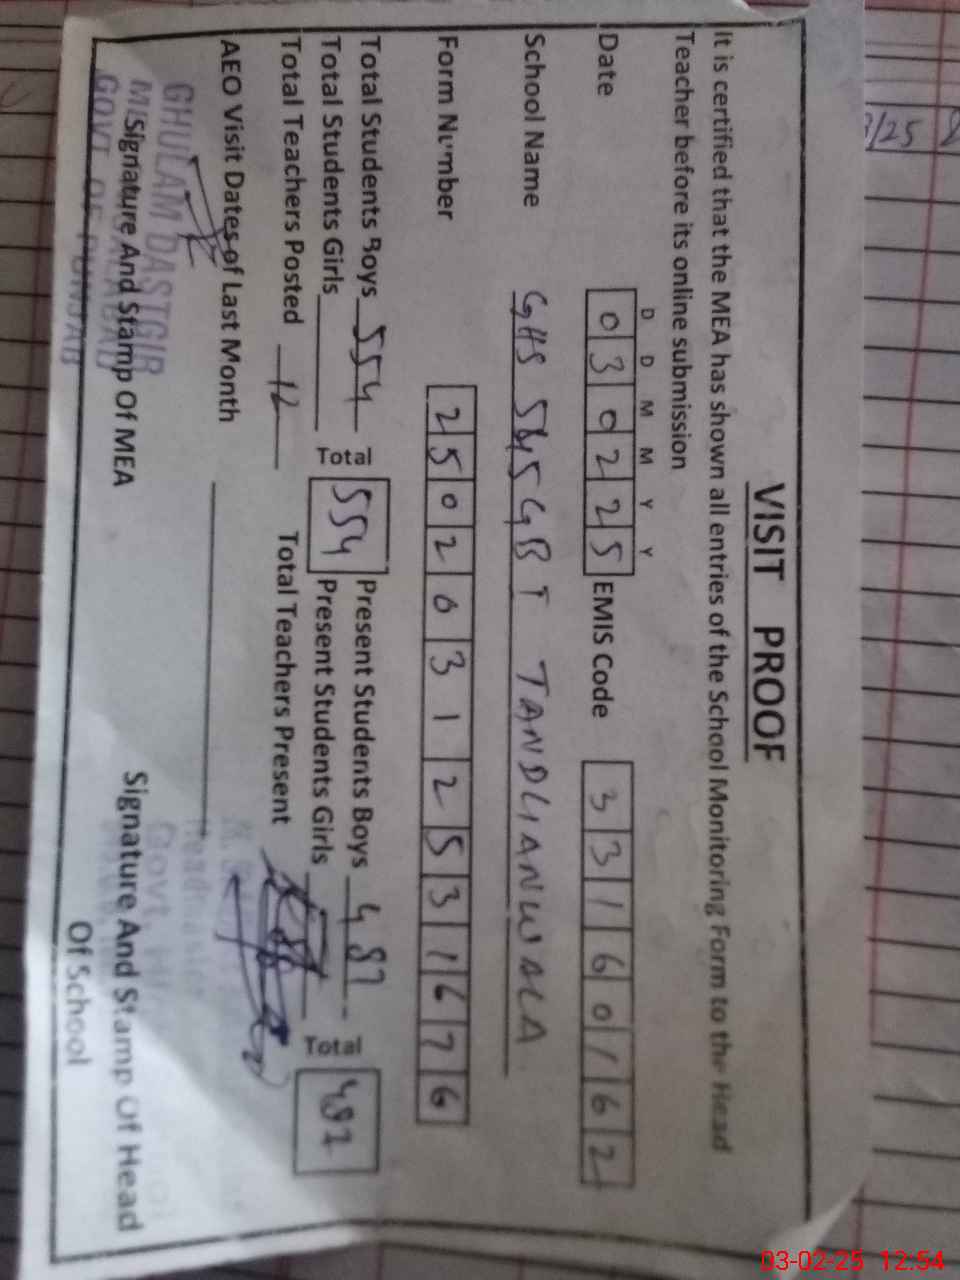 VISIT PROOF
It is certified that the MEA has shown all entries of the School Monitoring Form to the Head
Teacher before its online submission
D D M M Y Y
Date 030225 EMIS Code 33160162
School Name GHS 545 GB T TANDLIANWALA
Form Number 2502031253 1676
Total Students Boys 554 Total 554 Present Students Boys 487 Total 487
Total Students Girls Present Students Girls
Total Teachers Posted 12 Total Teachers Present
AEO Visit Dates of Last Month
GHULAM DASTGIR
Signature And Stamp Of MEA
GOVT OF PUNJAB
Signature And Stamp Of Head
Of School
3/25
03-02-25 12:54